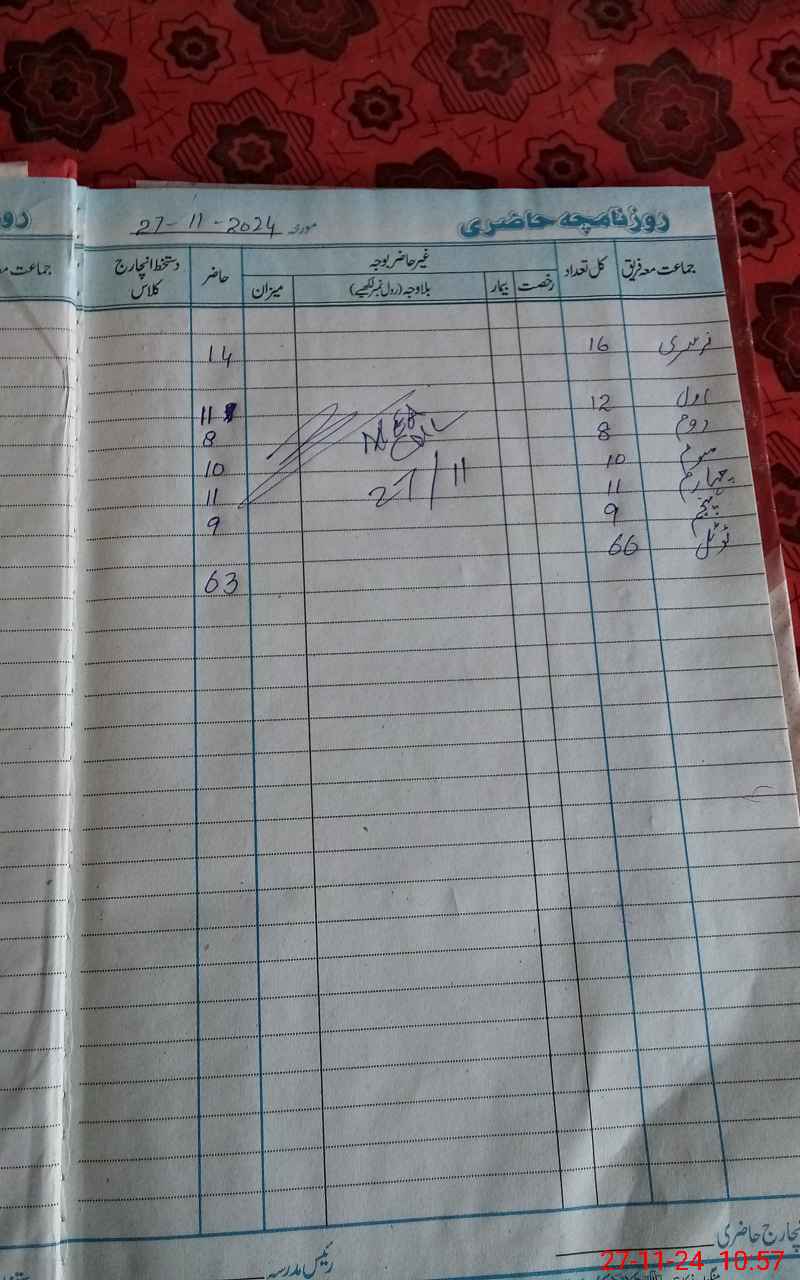 روزنامچہ حاضری مورخہ 27-11-2024
جماعت معہ فریق کل تعداد غیر حاضر بوجہ حاضر دستخط انچارج کلاس
رخصت بیمار بلاوجہ (رول نمبر لکھیے) میزان
نرسری 16 14
اول 12 11
دوم 8 8
سوم 10 10
چہارم 11 11
پنجم 9 9
ٹوٹل 66 63
27/11
رو
جماعت مع
نچارج حاضری
رئیس مدرسہ
27-11-24 10:57